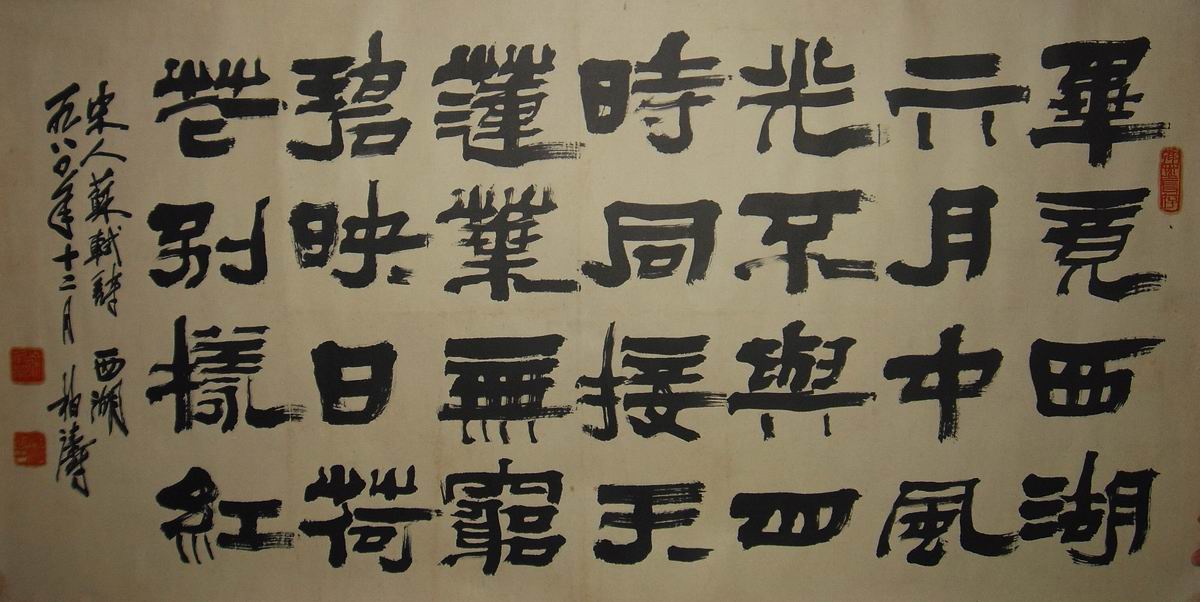 畢竟西湖
六月中風
光不與四
時同接天
蓮葉無窮
碧映日荷
花別樣紅
宋人蘇軾詩 西湖
一九八〇年十二月 柏濤